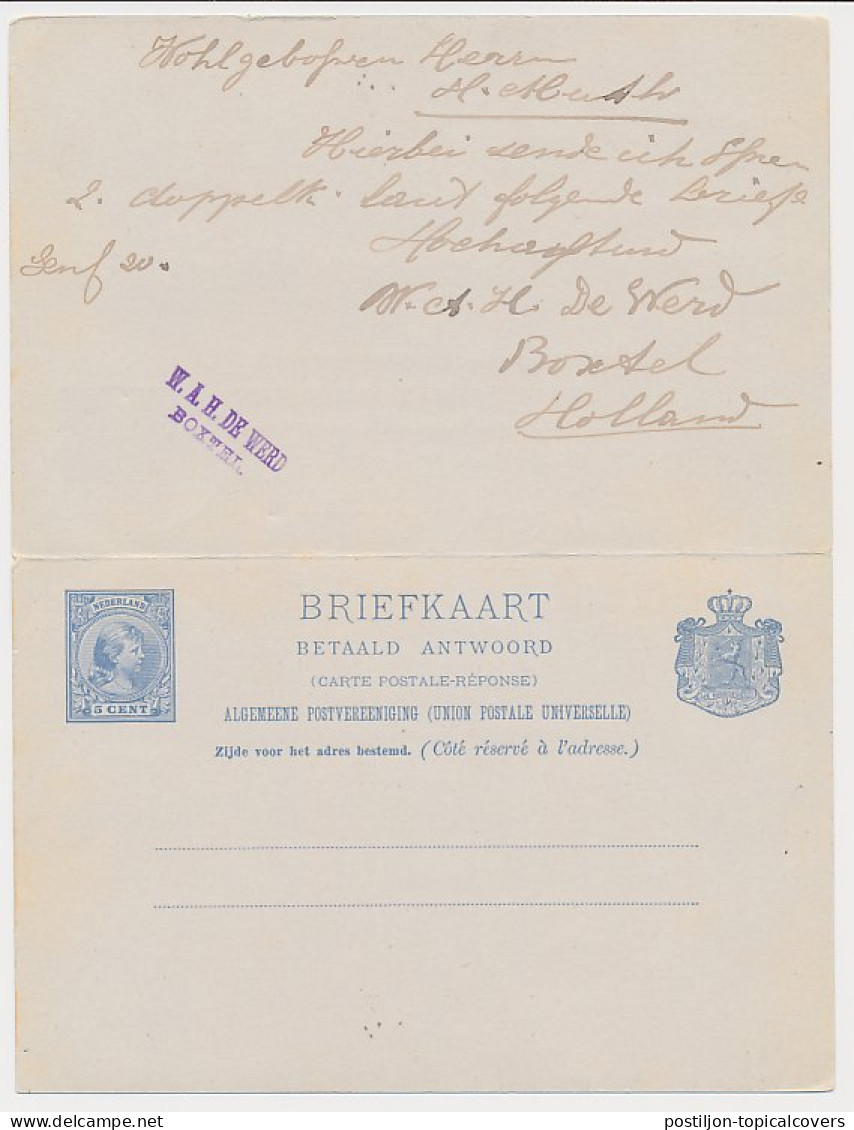 Wohlgeboren Herrn
H.
Hierbei sende ich Ihnen
2. doppelk. laut folgende briefe
Hochachtend
Genf 20.
W. A. H. De Werd
Boxtel
Holland
W. A. H. DE WERD
BOXTEL
NEDERLAND
5 CENT
BRIEFKAART
BETAALD ANTWOORD
(CARTE POSTALE-RÉPONSE)
ALGEMEENE POSTVEREENIGING (UNION POSTALE UNIVERSELLE)
Zijde voor het adres bestemd. (Côté réservé à l'adresse.)
postiljon-topicalcovers